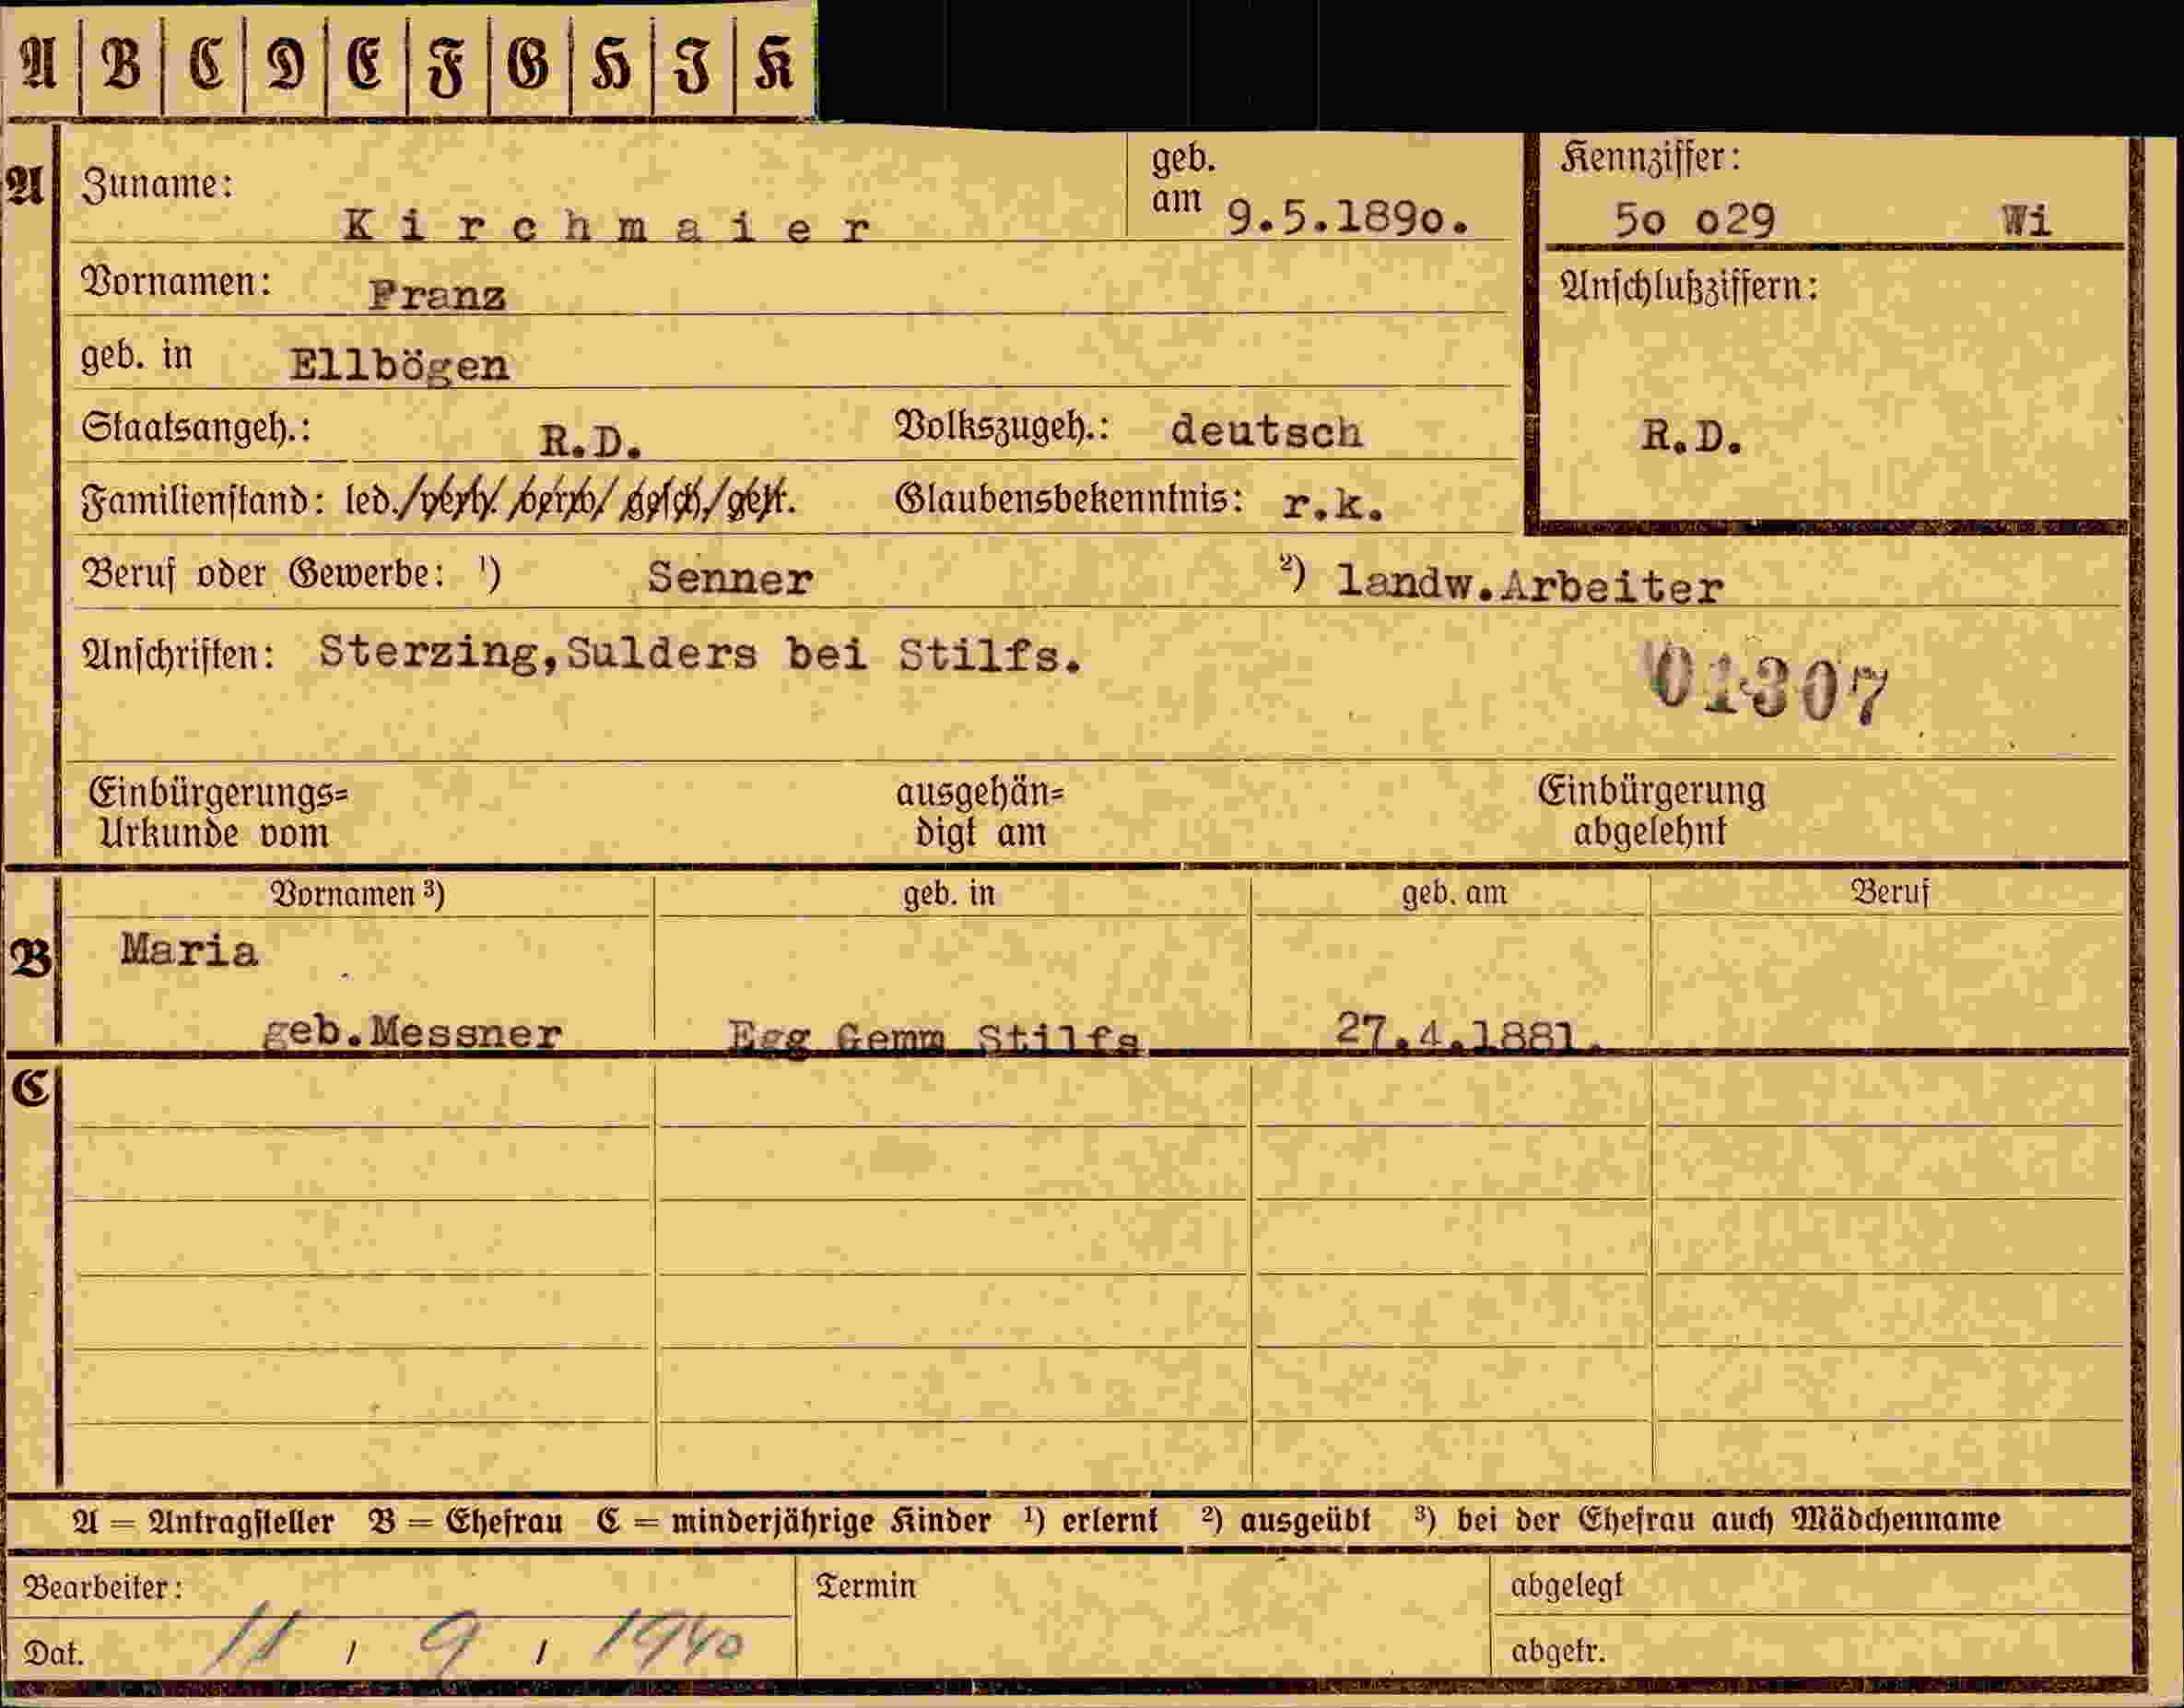 A B C D E F G H I K
A Zuname: Kirchmaier geb. am 9.5.189o. Kennziffer: 5o o29 Wi
Vornamen: Franz Anschlußziffern:
geb. in Ellbögen
Staatsangeh.: R.D. Volkszugeh.: deutsch R.D.
Familienstand: led./verh./verw./gesch./getr. Glaubensbekenntnis: r.k.
Beruf oder Gewerbe: ¹) Senner ²) landw.Arbeiter
Anschriften: Sterzing,Sulders bei Stilfs.
01307
Einbürgerungs= ausgehän= Einbürgerung
Urkunde vom digt am abgelehnt
Vornamen ³) geb. in geb. am Beruf
B Maria
geb.Messner Egg Gemm Stilfs 27.4.1881.
C
A = Antragsteller B = Ehefrau C = minderjährige Kinder ¹) erlernt ²) ausgeübt ³) bei der Ehefrau auch Mädchenname
Bearbeiter: Termin abgelegt
Dat. 11 / 9 / 1940 abgetr.